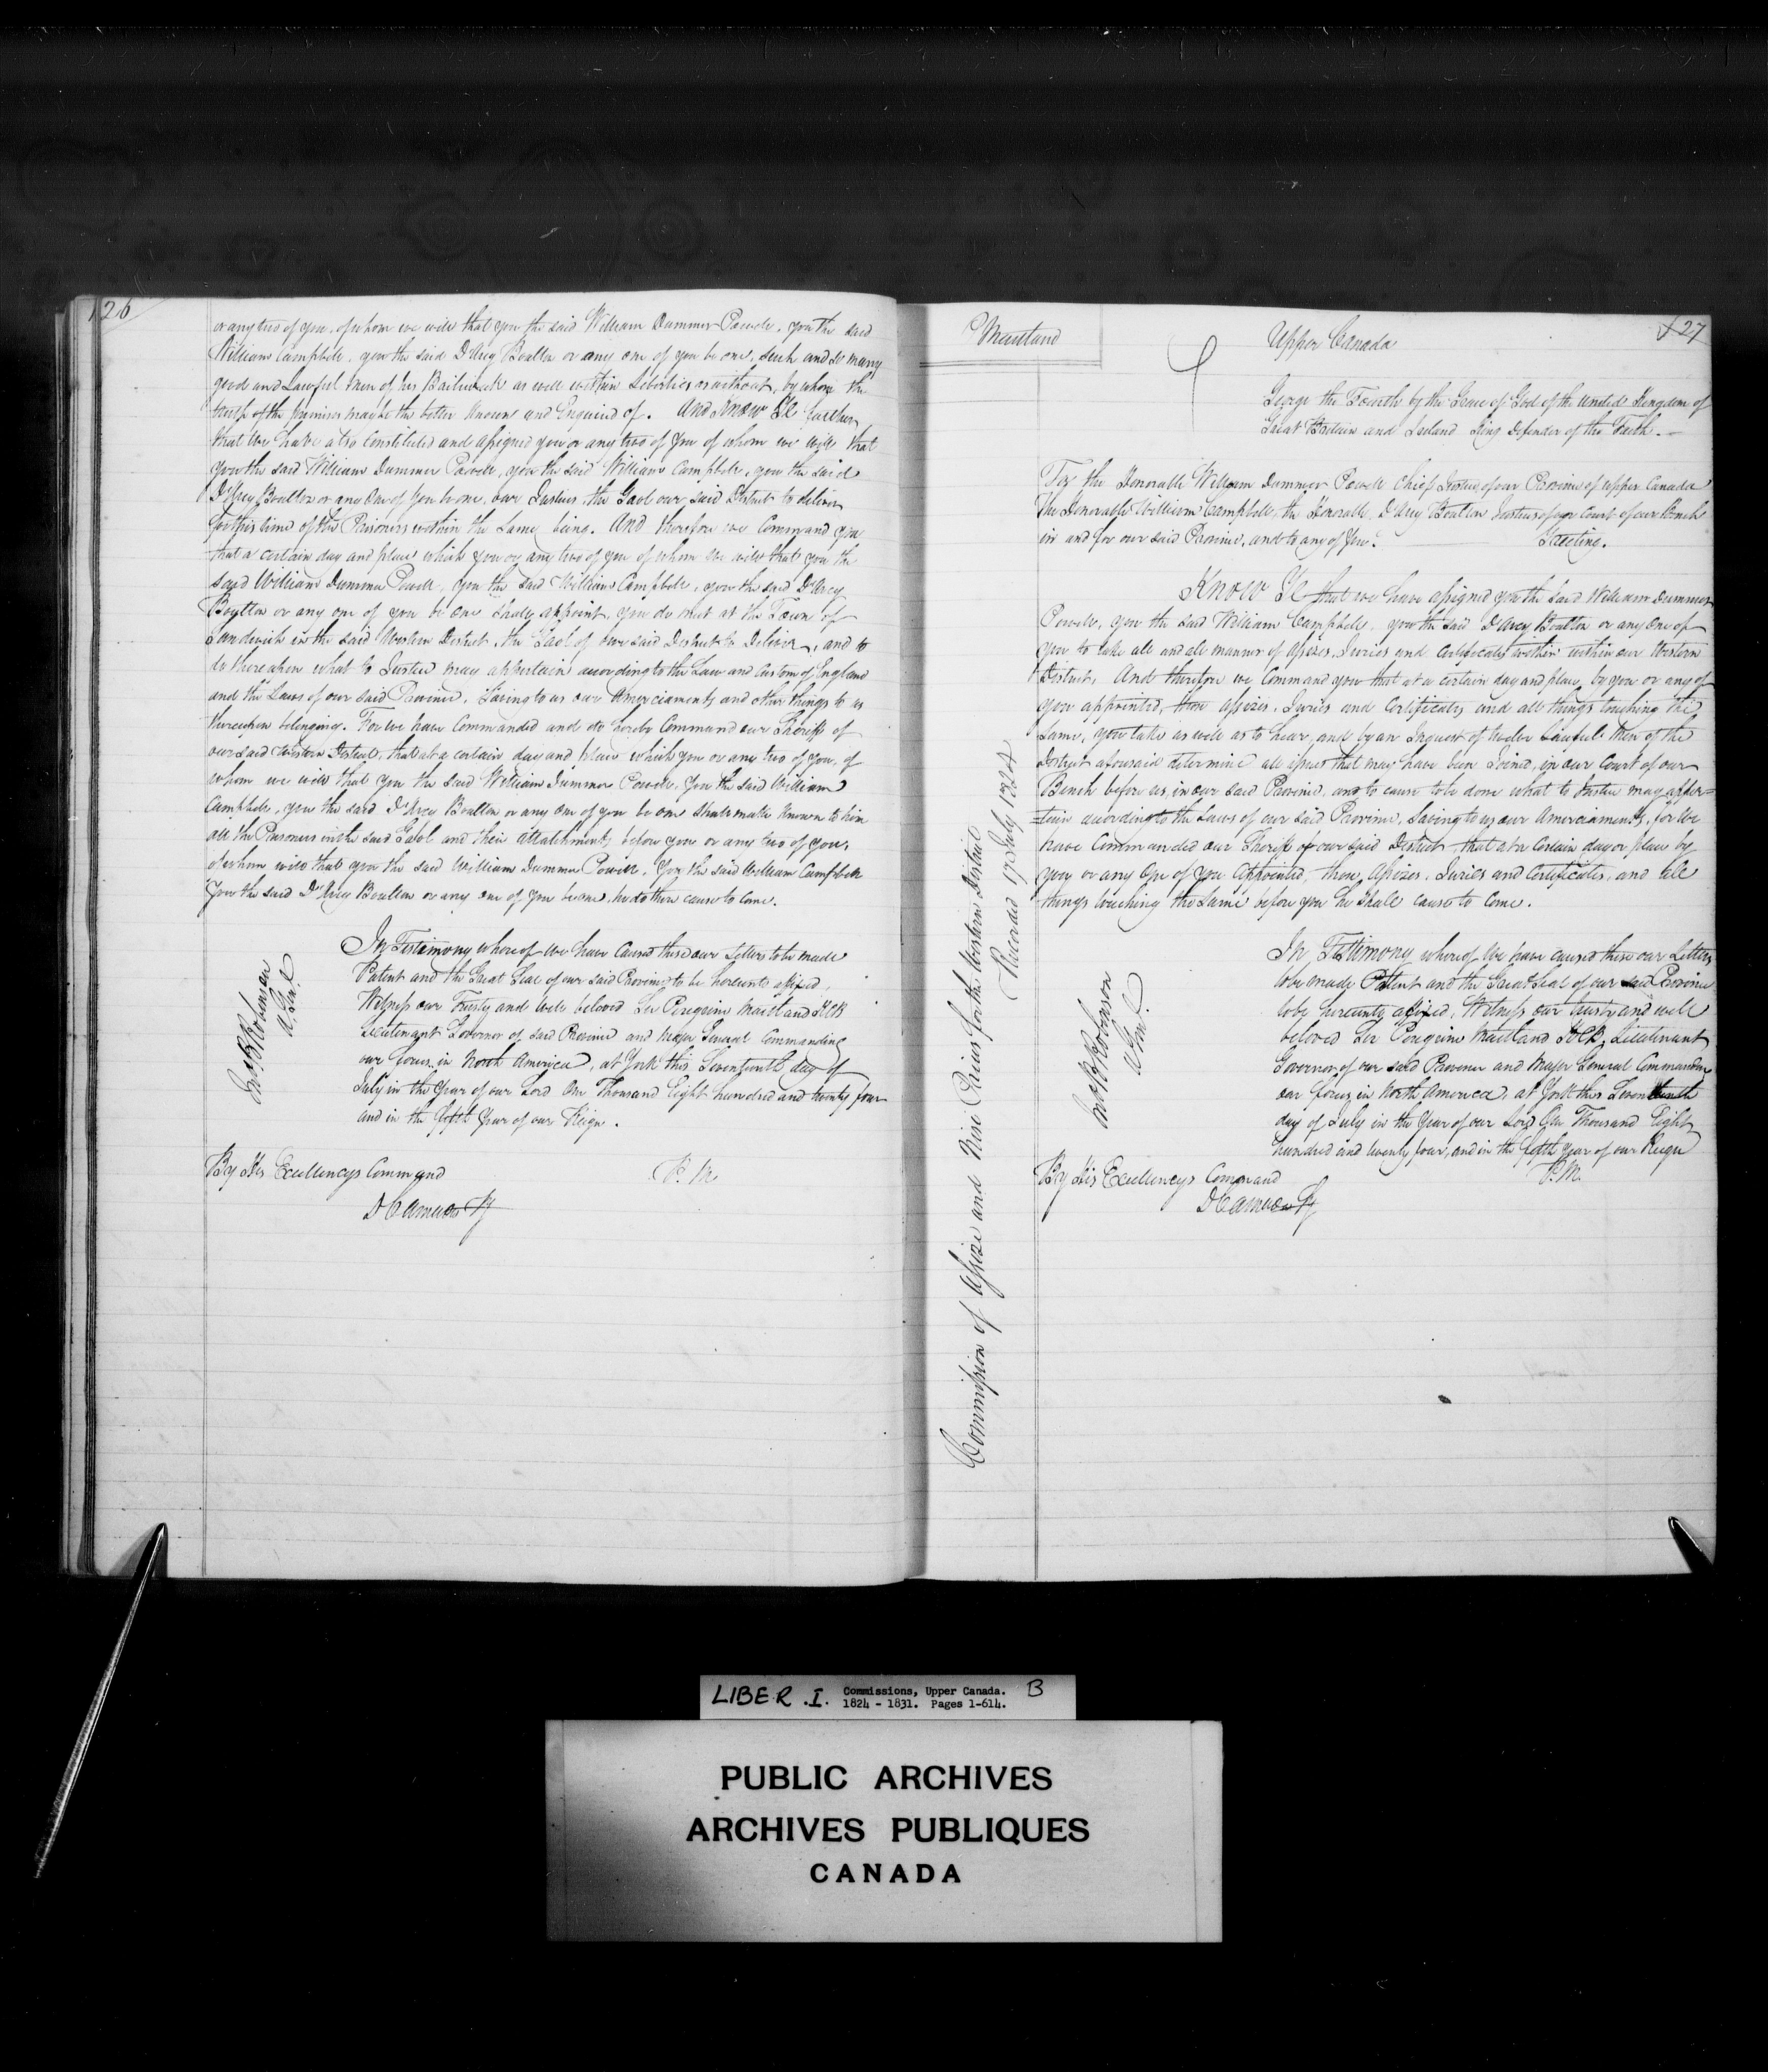 126
or any two of you, of whom we will that you the said William Dummer Powell, you the said
William Campbell, you the said D'Arcy Boulton or any one of you be one, such and so many
good and Lawful Men of his Bailiwick as well within Liberties as without, by whom the
truth of the premises may be the better known and Enquired of. And Know Ye further
that we have also Constituted and assigned you or any two of you of whom we will that
you the said William Dummer Powell, you the said William Campbell, you the said
D'Arcy Boulton or any One of you be one, our Justices, the Gaol our said District to deliver
for this time of the Prisoners within the Same being. And therefore we Command you
that a certain day and place which you or any two of you of whom we will that you the
said William Dummer Powell, you the said William Campbell, you the said D'Arcy
Boulton or any one of you be One shall appoint, you do meet at the Town of
Sandwich in the said Western District, the Gaol of our said District to Deliver, and to
do thereupon what to Justice may appertain according to the Law and Custom of England
and the Laws of our said Province, Saving to us our Amerciaments and other things to us
thereupon belonging. For we have Commanded and do hereby Command our Sheriff of
our said Western District, that at a certain day and place which you or any two of you, of
whom we will that you the said William Dummer Powell, you the said William
Campbell, you the said D'Arcy Boulton or any one of you be one shall make known to him
all the Prisoners in the said Gaol and their Attachments before you or any two of you,
of whom will that you the said William Dummer Powell, you the said William Campbell
you the said D'Arcy Boulton or any one of you be one, he do there cause to Come.
In Testimony whereof we have Caused these our Letters to be made
Patent and the Great Seal of our said Province to be hereunto affixed,
Witness our Trusty and well beloved Sir Peregrine Maitland KCB
Lieutenant Governor of said Province and Major General Commanding
our forces in North America, at York this Seventeenth day of
July in the Year of our Lord One Thousand Eight hundred and twenty four
and in the fifth Year of our Reign.
Jno B Robinson
A. Genl.
By His Excellencys Command
P. M.
D Cameron Sy
Maitland
127
Upper Canada
George the Fourth by the Grace of God of the United Kingdom of
Great Britain and Ireland King Defender of the Faith.
To the Honorable William Dummer Powell Chief Justice of our Province of Upper Canada
The Honorable William Campbell, the Honorable D'Arcy Boulton Justices of our Court of our Bench
in and for our said Province, and to any of you. Greeting.
Know Ye that we have assigned you the said William Dummer
Powell, you the said William Campbell, you the said D'Arcy Boulton or any One of
you to take all and all manner of Assizes, Juries and Certificates within within our Western
District, And therefore we Command you that at a certain day and place, by you or any of
you appointed, those Assizes, Juries and Certificates and all things touching the
Same, you take as well as to hear, and by an Inquest of twelve Lawful Men of the
District aforesaid determine all issues that may have been Joined, in our Court of our
Bench before us, in our said Province, and to cause to be done what to Justice may apper=
=tain according to the Laws of our said Province, Saving to us our Amerciaments, for We
have Commanded our Sheriff of our said District that at a Certain day or place by
you or any One of you Appointed, those, Assizes, Juries and Certificates, and all
things touching the Same before you he shall cause to come.
In Testimony whereof We have caused these our Letters
to be made Patent and the Great Seal of our said Province
to be hereunto affixed, Witness our trusty and well
beloved Sir Peregrine Maitland KCB, Lieutenant
Governor of our said Province and Major General Commanding
our forces in North America, at York this Seventeenth
day of July in the Year of our Lord One Thousand Eight
hundred and twenty four, and in the fifth year of our Reign
Jno B Robinson
A Genl.
By His Excellencys Command
P. M.
D Cameron Sy
Commission of Assize and Nisi Prius for the Western District
Recorded 17 July 1824
LIBER .I. Commissions, Upper Canada. B
1824 - 1831. Pages 1-614.
PUBLIC ARCHIVES
ARCHIVES PUBLIQUES
CANADA